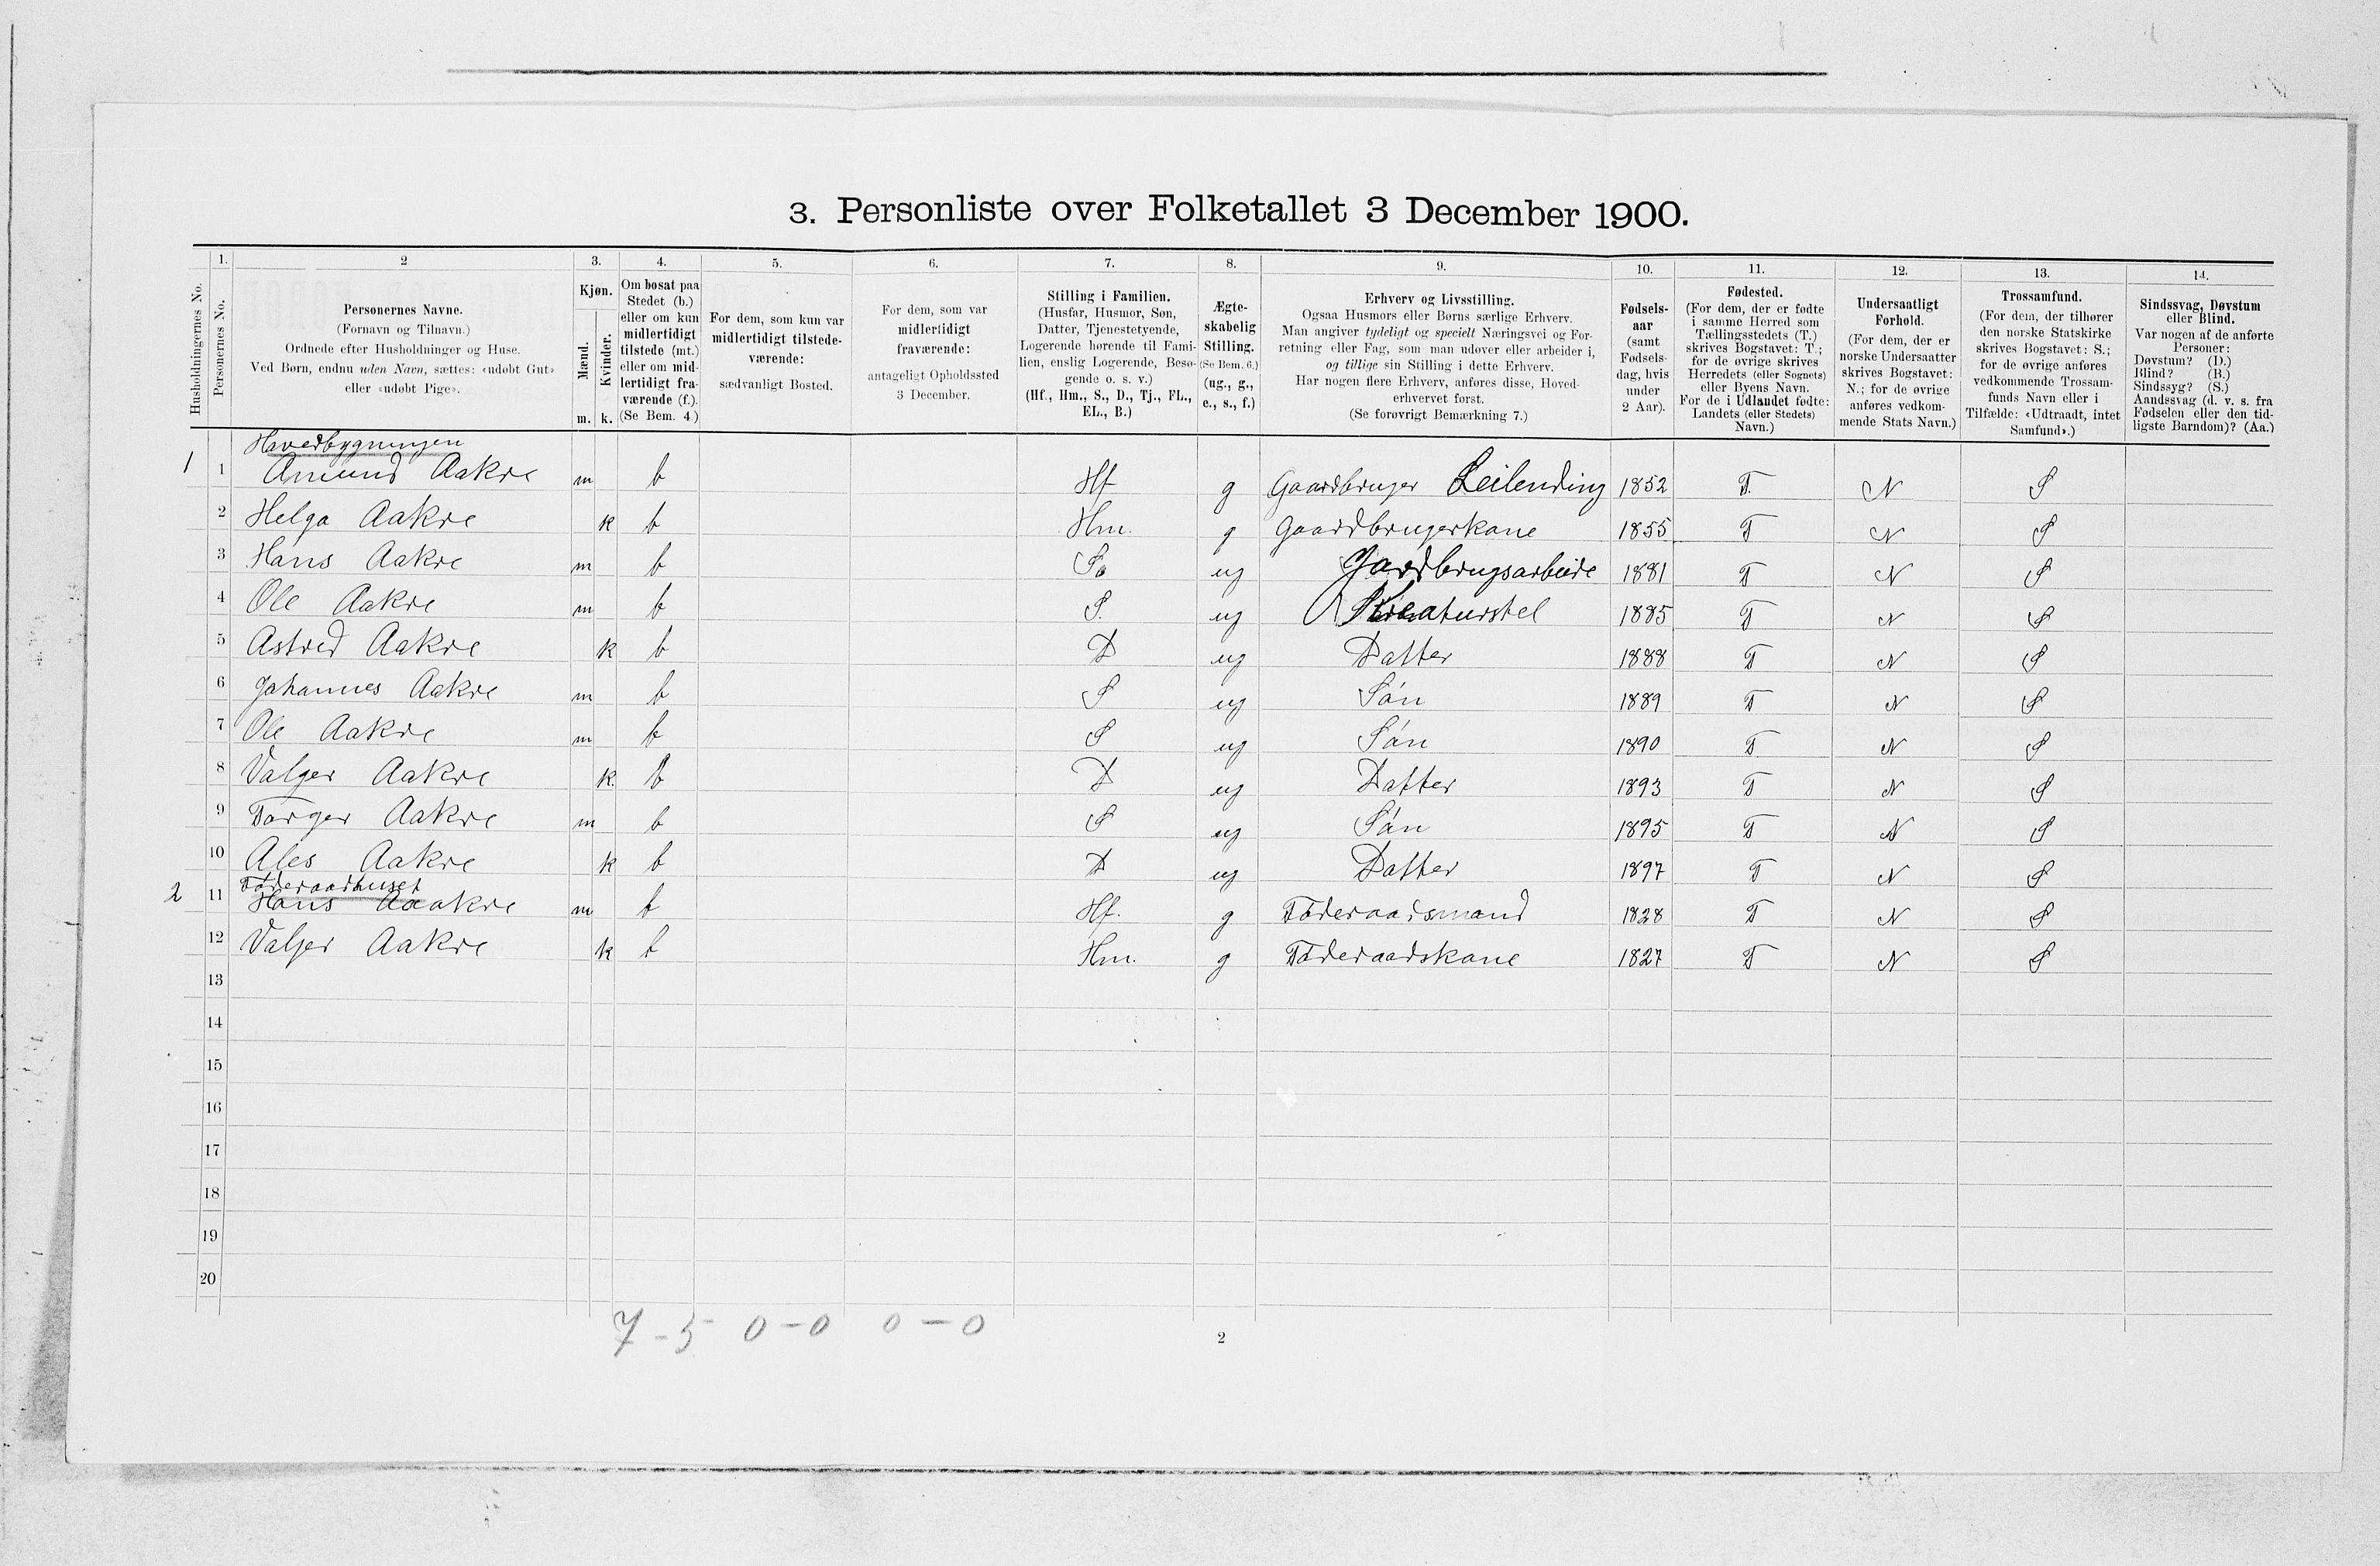 3. Personliste over Folketallet 3 December 1900.
Husholdningernes No.
1.
Personernes No.
2
Personernes Navne.
(Fornavn og Tilnavn.)
Ordnede efter Husholdninger og Huse.
Ved Børn, endnu uden Navn, sættes: «udøbt Gut»
eller «udøbt Pige».
3.
Kjøn.
Mænd.
Kvinder.
m. k.
4.
Om bosat paa
Stedet (b.)
eller om kun
midlertidigt
tilstede (mt.)
eller om mid-
lertidigt fra-
værende (f.).
(Se Bem. 4.)
5.
For dem, som kun var
midlertidigt tilstede-
værende:
sædvanligt Bosted.
6.
For dem, som var
midlertidigt
fraværende:
antageligt Opholdssted
3 December.
7.
Stilling i Familien.
(Husfar, Husmor, Søn,
Datter, Tjenestetyende,
Logerende hørende til Fami-
lien, enslig Logerende, Besø-
gende o. s. v.)
(Hf., Hm., S., D., Tj., FL.,
EL., B.)
8.
Ægte-
skabelig
Stilling.
(Se Bem. 6.)
(ug., g.,
e., s., f.)
9.
Erhverv og Livsstilling.
Ogsaa Husmors eller Børns særlige Erhverv.
Man angiver tydeligt og specielt Næringsvei og For-
retning eller Fag, som man udøver eller arbeider i,
og tillige sin Stilling i dette Erhverv.
Har nogen flere Erhverv, anføres disse, Hoved-
erhvervet først.
(Se forøvrigt Bemærkning 7.)
10.
Fødsels-
aar
(samt
Fødsels-
dag, hvis
under
2 Aar).
11.
Fødested.
(For dem, der er fødte
i samme Herred som
Tællingsstedets (T.)
skrives Bogstavet: T.;
for de øvrige skrives
Herredets (eller Sognets)
eller Byens Navn.
For de i Udlandet fødte:
Landets (eller Stedets)
Navn.)
12.
Undersaatligt
Forhold.
(For dem, der er
norske Undersaatter
skrives Bogstavet:
N.; for de øvrige
anføres vedkom-
mende Stats Navn.)
13.
Trossamfund.
(For dem, der tilhører
den norske Statskirke
skrives Bogstavet: S.;
for de øvrige anføres
vedkommende Trossam-
funds Navn eller i
Tilfælde: «Udtraadt, intet
Samfund».)
14.
Sindssvag, Døvstum
eller Blind.
Var nogen af de anførte
Personer:
Døvstum? (D.)
Blind? (B.)
Sindssyg? (S.)
Aandssvag (d. v. s. fra
Fødselen eller den tid-
ligste Barndom)? (Aa.)
Hovedbygningen
1 1 Amund Aakre m b Hf g Gaardbruger Leilending 1852 T. N S
2 Helga Aakre k b Hm. g Gaardbrugerkone 1855 T N S
3 Hans Aakre m b S. ug Gaardbrugsarbeide 1881 T N S
4 Ole Aakre m b S. ug Kreaturstel 1885 T N S
5 Astred Aakre k b D ug Datter 1888 T N S
6 Johannes Aakre m b S ug Sön 1889 T N S
7 Ole Aakre m b S ug Sön 1890 T N S
8 Valger Aakre k. b D ug Datter 1893 T N S
9 Torger Aakre m b S ug Sön 1895 T N S
10 Ales Aakre k b D ug Datter 1897 T N S
Föderaadhuset
2 11 Hans Aaakre m b Hf. g Föderaadsmand 1828 T N S
12 Valger Aakre k b Hm. g Föderaadskone 1827 T N S
13
14
15
16
17
18
19
20
7 - 5 0 - 0 0 - 0
2